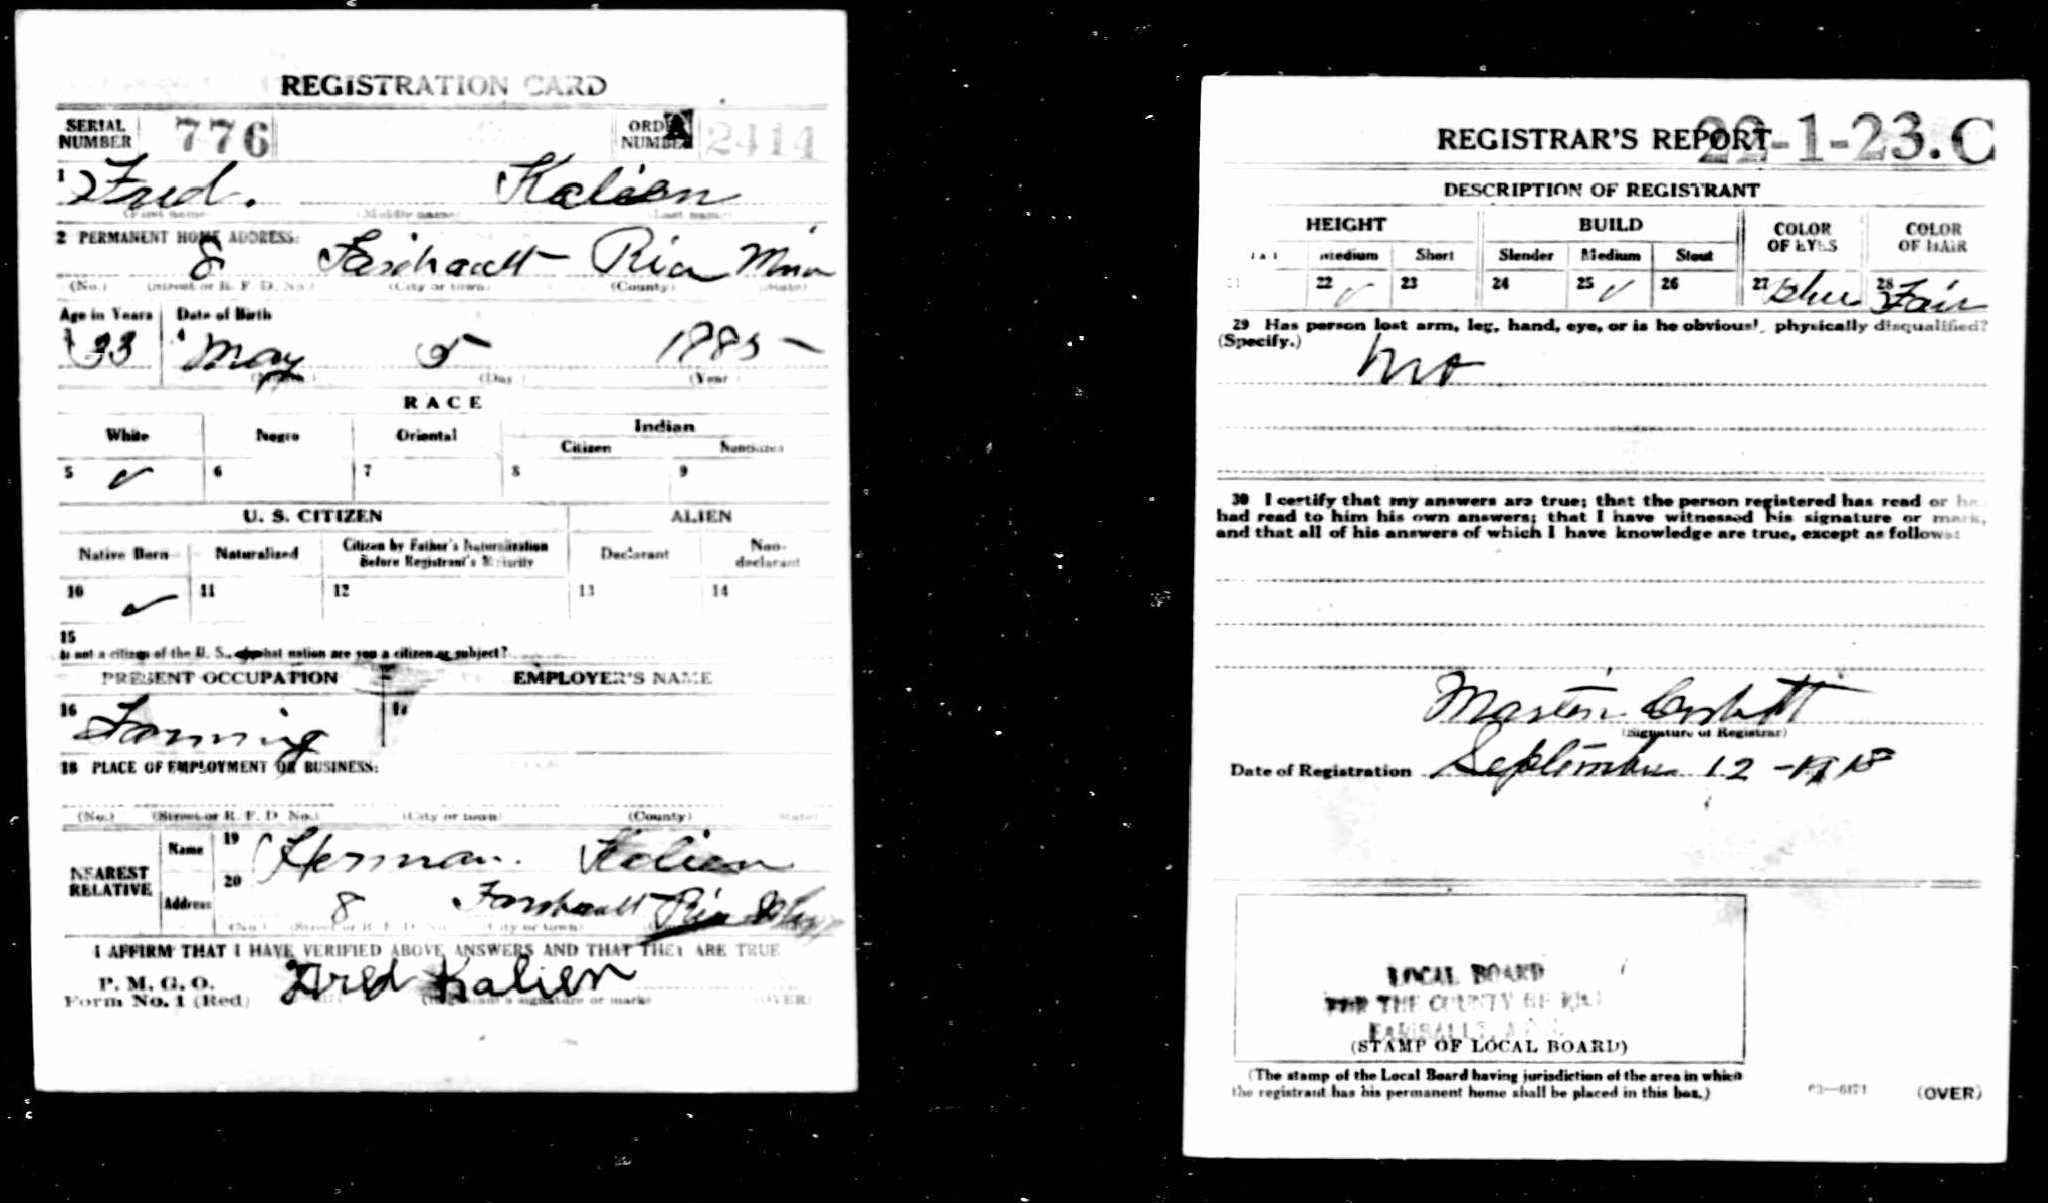 REGISTRATION CARD
SERIAL NUMBER 776 ORDER NUMBER A 2414
1 Fred. Kalien
(First name) (Middle name) (Last name)
2 PERMANENT HOME ADDRESS:
8 Farihault Rice Minn
(No.) (Street or R. F. D. No.) (City or town) (County) (State)
Age in Years Date of Birth
33 4 May 5 1885
(Month.) (Day.) (Year.)
RACE
White Negro Oriental Indian
Citizen Noncitizen
5 ✓ 6 7 8 9
U. S. CITIZEN ALIEN
Native Born Naturalized Citizen by Father's Naturalization Before Registrant's Majority Declarant Non-declarant
10 ✓ 11 12 13 14
15
If not a citizen of the U. S., of what nation are you a citizen or subject?
PRESENT OCCUPATION EMPLOYER'S NAME
16 Farming 17
18 PLACE OF EMPLOYMENT OR BUSINESS:
(No.) (Street or R. F. D. No.) (City or town) (County) (State)
NEAREST RELATIVE Name 19 Herman Kalien
Address 20 8 Rice
(No.) (Street or R. F. D. No.) (City or town)
I AFFIRM THAT I HAVE VERIFIED ABOVE ANSWERS AND THAT THEY ARE TRUE
P. M. G. O.
Form No. 1 (Red) Fred Kalien
(Registrant's signature or mark) (OVER)
REGISTRAR'S REPORT 22-1-23.C
DESCRIPTION OF REGISTRANT
HEIGHT BUILD COLOR OF EYES COLOR OF HAIR
Tall Medium Short Slender Medium Stout
21 22 ✓ 23 24 25 ✓ 26 27 Blue 28 Fair
29 Has person lost arm, leg, hand, eye, or is he obviously physically disqualified?
(Specify.) No
30 I certify that my answers are true; that the person registered has read or has
had read to him his own answers; that I have witnessed his signature or mark,
and that all of his answers of which I have knowledge are true, except as follows:
Martin
(Signature of Registrar)
Date of Registration September 12 - 1918
LOCAL BOARD
FOR THE COUNTY OF RICE
(STAMP OF LOCAL BOARD)
(The stamp of the Local Board having jurisdiction of the area in which
the registrant has his permanent home shall be placed in this box.)
03—6171 (OVER)